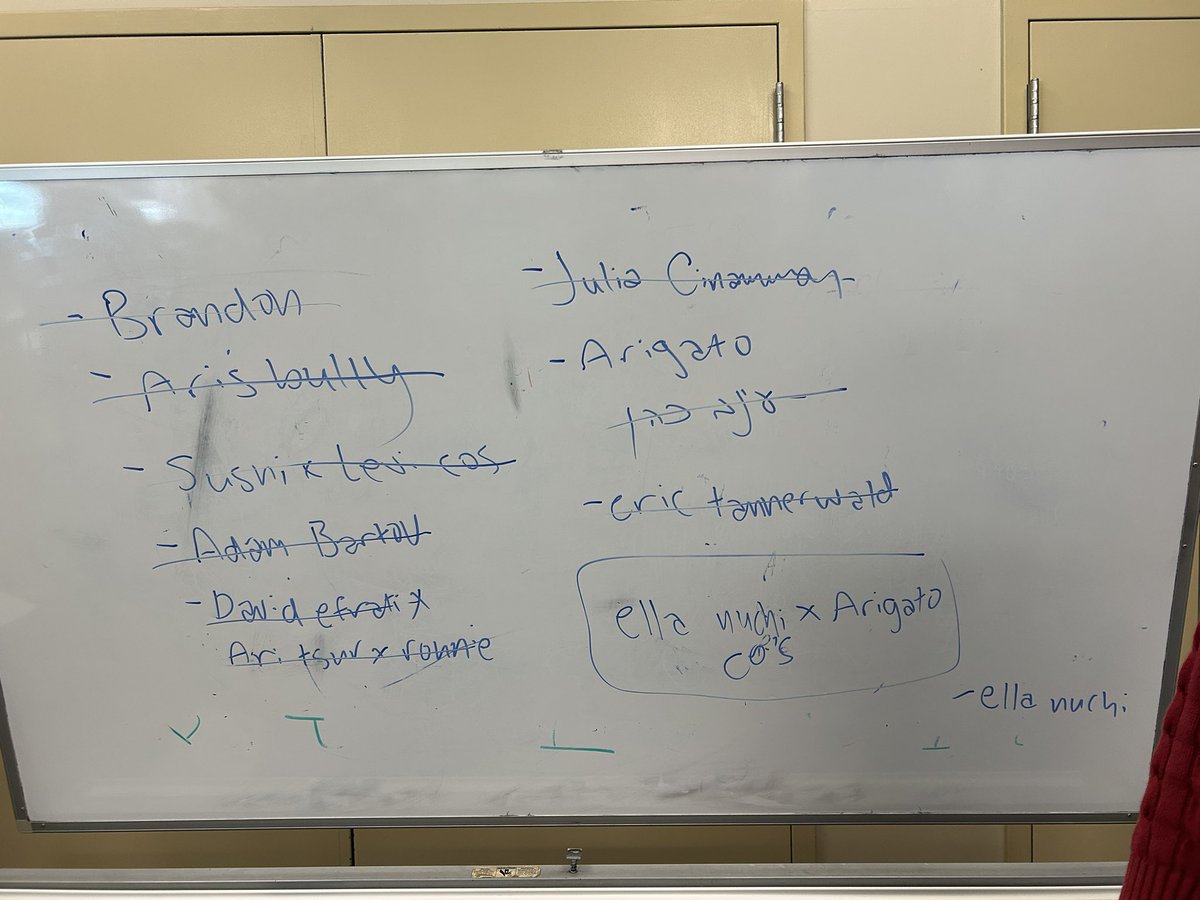 - Brandon
- Aris bully
- Susni x Levi cos
- Adam Bartov
- David efrati x
Ari tsur x ronnie
- Julia Cinamman
- Arigato
כהן
- eric tannerwald
ella nuchi x Arigato
co's
- ella nuchi